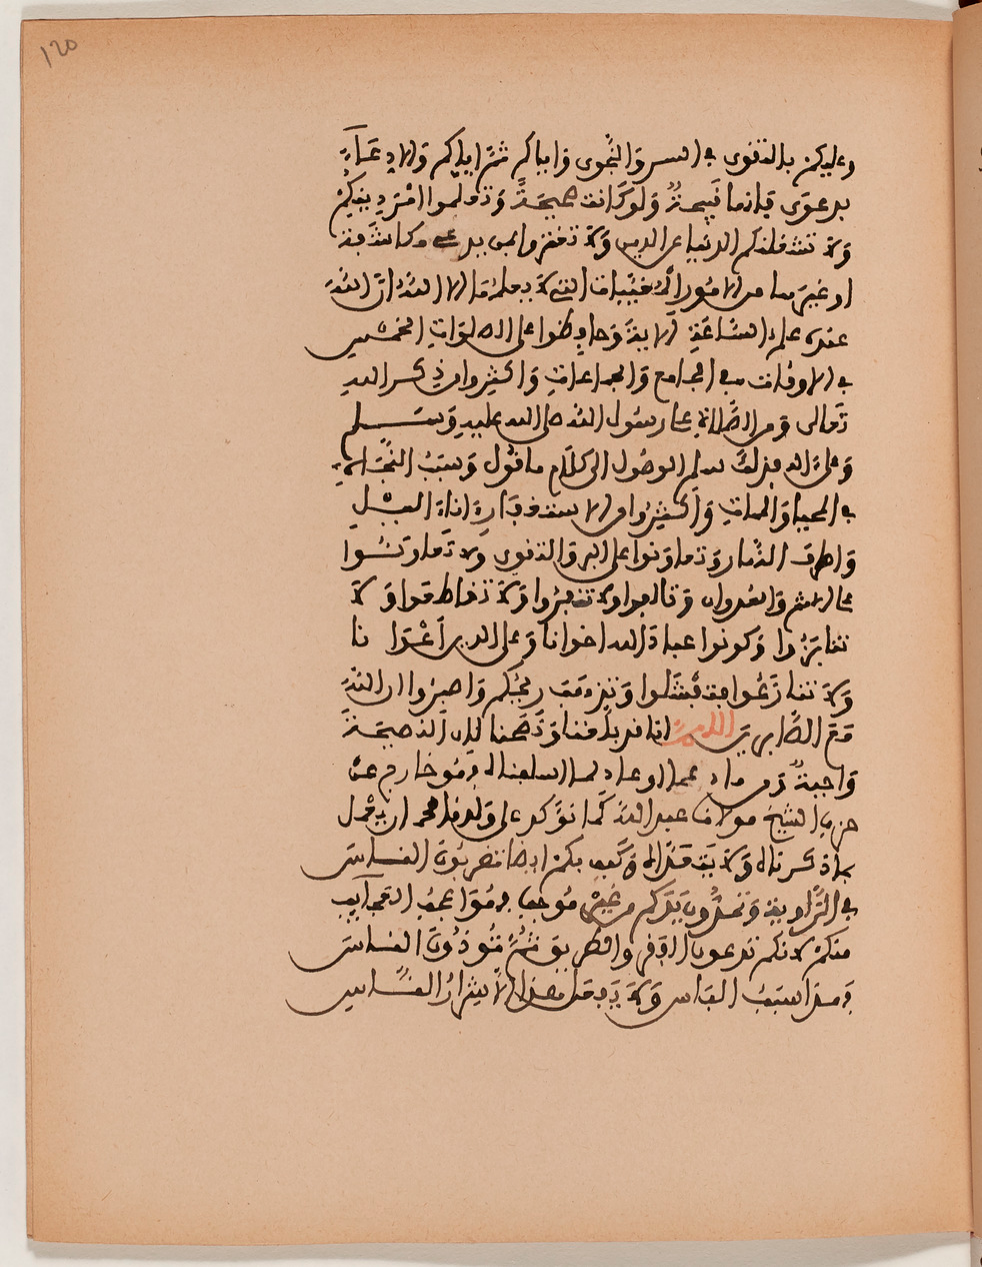 ١٢٥
وعليكم بالتقوى في السر والنجوى وإياكم ثم إياكم والادعاء
بدعوى فإنها قبيحة ولو كانت صحيحة وتعلموا أمر دينكم
ولا تشغلنكم الدنيا عن الدين ولا تغتروا بمن يدعي مكاشفة
أو غيرها من الأمور المغيبات التي لا يعلمها إلا الله إن الله
عنده علم الساعة الآية وحافظوا على الصلوات الخمس
في الأوقات في الجامع والجماعات وأكثروا من ذكر الله
تعالى ومن الصلاة على رسول الله صلى الله عليه وسلم
وعلى آله فذلك سلم الوصول إلى كلام ما قول وسبب النجاة
في المحيا والممات وأكثروا من الاستغفار آناء الليل
وأطراف النهار وتعاونوا على البر والتقوى ولا تعاونوا
على الإثم والعدوان وتآلفوا ولا تنفروا ولا تقاطعوا ولا
تنابزوا وكونوا عباد الله إخوانا وعلى الدين أعوانا
ولا تنازعوا فتفشلوا وتذهب ريحكم واصبروا إن الله
مع الصابرين اللهم إنا قد بلغنا ونصحنا لأن النصيحة
واجبة ومن حاد عما أو عاد لما أسلفناه فهو خارج عن
حزب الشيخ مولانا عبد الله كما نؤكد على ولدنا محمد أن يعمل
بما ذكرناه ولا يتعداه وكيف بكم أيضا تضربون الناس
في الزاوية وتمدون يدكم من غير موجب فهو أعجب العجايب
منكم لأنكم تدعون الفقر والطريق ثم تؤذون الناس
فهذا سبب الباس ولا يفعل هذا إلا أشرار الناس